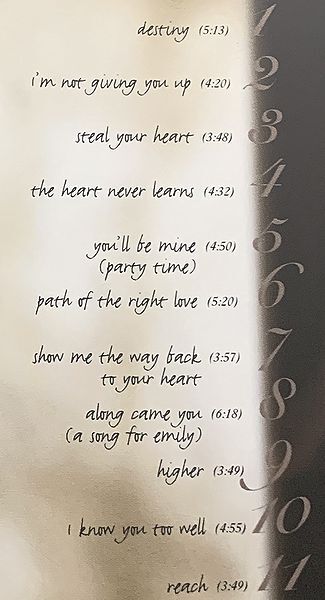 destiny (5:13) 1
i'm not giving you up (4:20) 2
steal your heart (3:48) 3
the heart never learns (4:32) 4
you'll be mine (4:50) 5
(party time)
path of the right love (5:20) 6
show me the way back (3:57) 7
to your heart
along came you (6:18) 8
(a song for emily)
higher (3:49) 9
I know you too well (4:55) 10
reach (3:49) 11